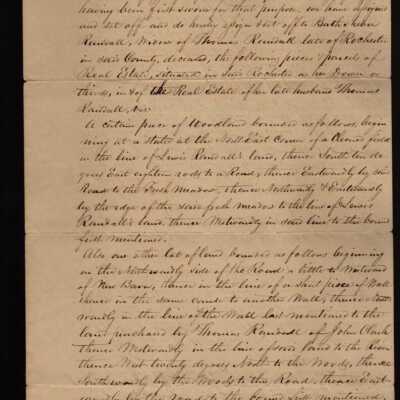 having been first sworn for that purpose, we have apprais
and set off and do hereby assign & set off to Ruth
Randall, Widow of Thomas Randall late of Rochester
in said County, deceased, the following pieces & parcels of
Real Estate, situated in said Rochester as her Dower or
thirds, in & of the Real Estate of her late husband Thomas
Randall, viz.
A certain piece of Woodland bounded as follows, begin
ning at a stake at the North East Corner of a Cleared field
in the line of Lewis Randall's land, thence South ten de
grees East eighteen rods to a Road, thence Eastwardly by said
Road to the Fresh Meadow, thence Northwardly & Eastwardly
by the edge of the said fresh meadow to the line of Lewis
Randall's land, thence Westwardly in said line to the bound
first mentioned.
Also one other lot of land bounded as follows beginning
on the Northwardly side of the Road a little to Westward
of the Barn, thence in the line of a short piece of Wall
thence in the same course to another Wall, thence
wardly in the line of the Wall last mentioned to the
land purchased by Thomas Randall of John Clark
thence Westwardly in the line of said land to the
thence West twenty degrees North to the Woods, thence
Southwardly by the Woods to the Road, thence East
wardly by the road to the bound first mentioned,